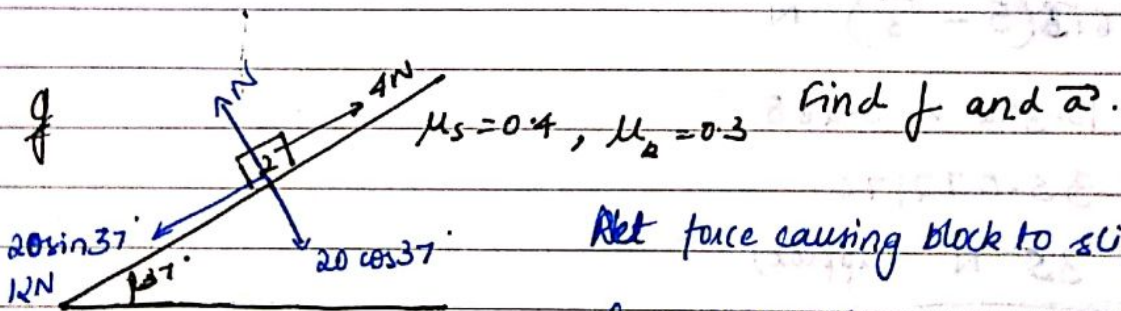 g
N
4N
μs=0.4, μk=0.3
Find f and a⃗.
2
20sin37°
12N
37°
20 cos37°
Net force causing block to sli